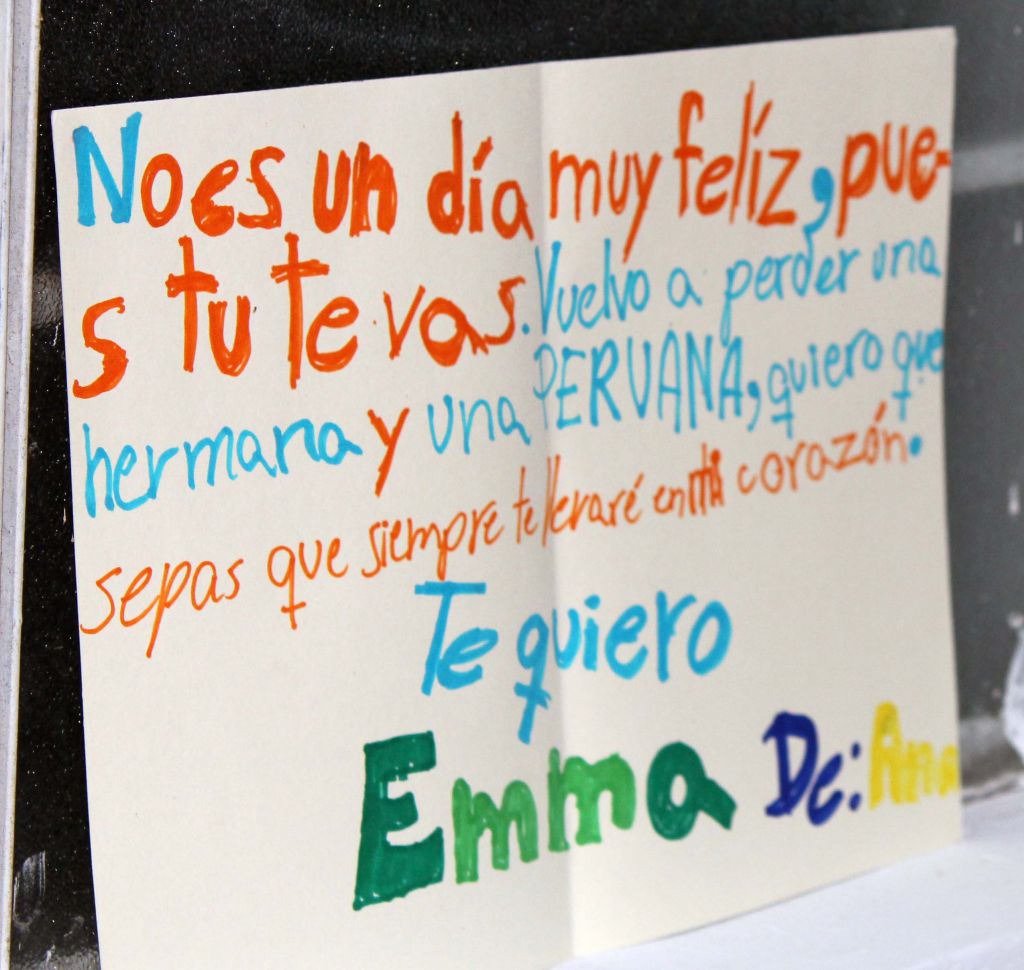 No es un día muy felíz, pue-
s tu te vas. Vuelvo a perder una
hermana y una PERUANA, quiero que
sepas que siempre te llevaré en mi corazón.
Te quiero
Emma De: Ana